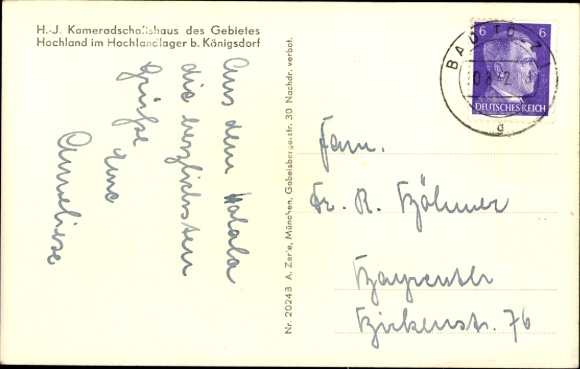 H.-J. Kameradschaftshaus des Gebietes
Hochland im Hochlandlager b. Königsdorf
Aus dem
die herzlichsten
Grüße
Anneliese
Nr. 20243 A. Zerle, München, Gabelsbergerstr. 30 Nachdr. verbot.
BAD TÖLZ
6 6
DEUTSCHES REICH
Fam.
Dr. R. Böhmer
Bayreuth
Birkenstr. 76